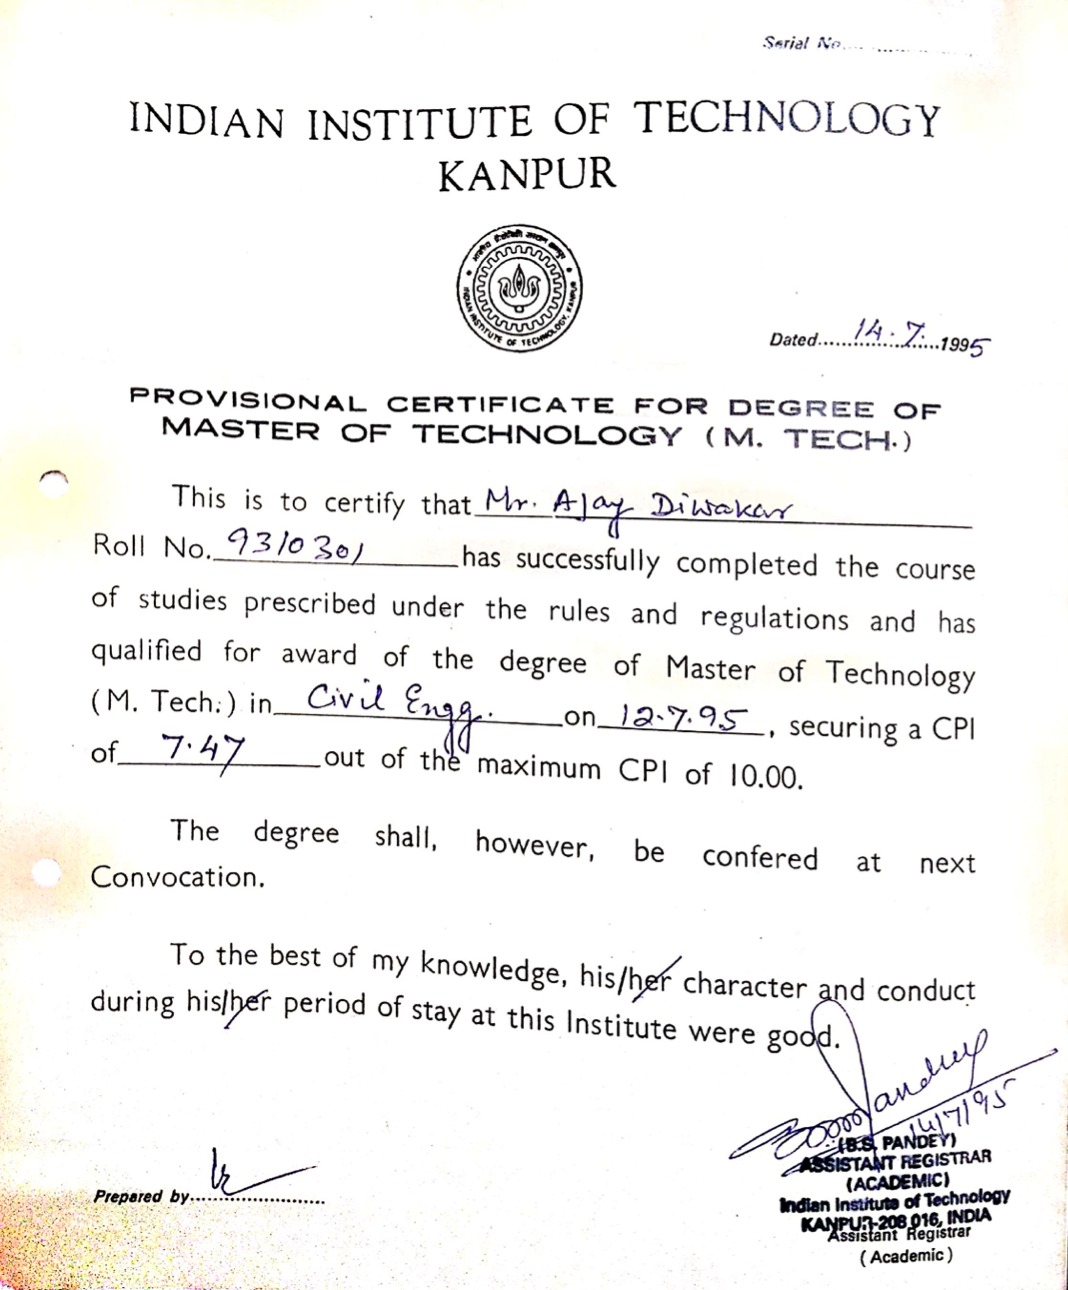 Serial No....................
INDIAN INSTITUTE OF TECHNOLOGY
KANPUR
भारतीय प्रौद्योगिकी संस्थान कानपुर
INDIAN INSTITUTE OF TECHNOLOGY, KANPUR
Dated......14.7......1995
PROVISIONAL CERTIFICATE FOR DEGREE OF
MASTER OF TECHNOLOGY (M. TECH.)
This is to certify that Mr. Ajay Diwakar
Roll No. 9310301 has successfully completed the course
of studies prescribed under the rules and regulations and has
qualified for award of the degree of Master of Technology
(M. Tech.) in Civil Engg. on 12.7.95, securing a CPI
of 7.47 out of the maximum CPI of 10.00.
The degree shall, however, be confered at next
Convocation.
To the best of my knowledge, his/her character and conduct
during his/her period of stay at this Institute were good.
Pandey
14/7/95
(B.S. PANDEY)
ASSISTANT REGISTRAR
(ACADEMIC)
Indian Institute of Technology
KANPUR-208 016, INDIA
Prepared by........................
Assistant Registrar
(Academic)